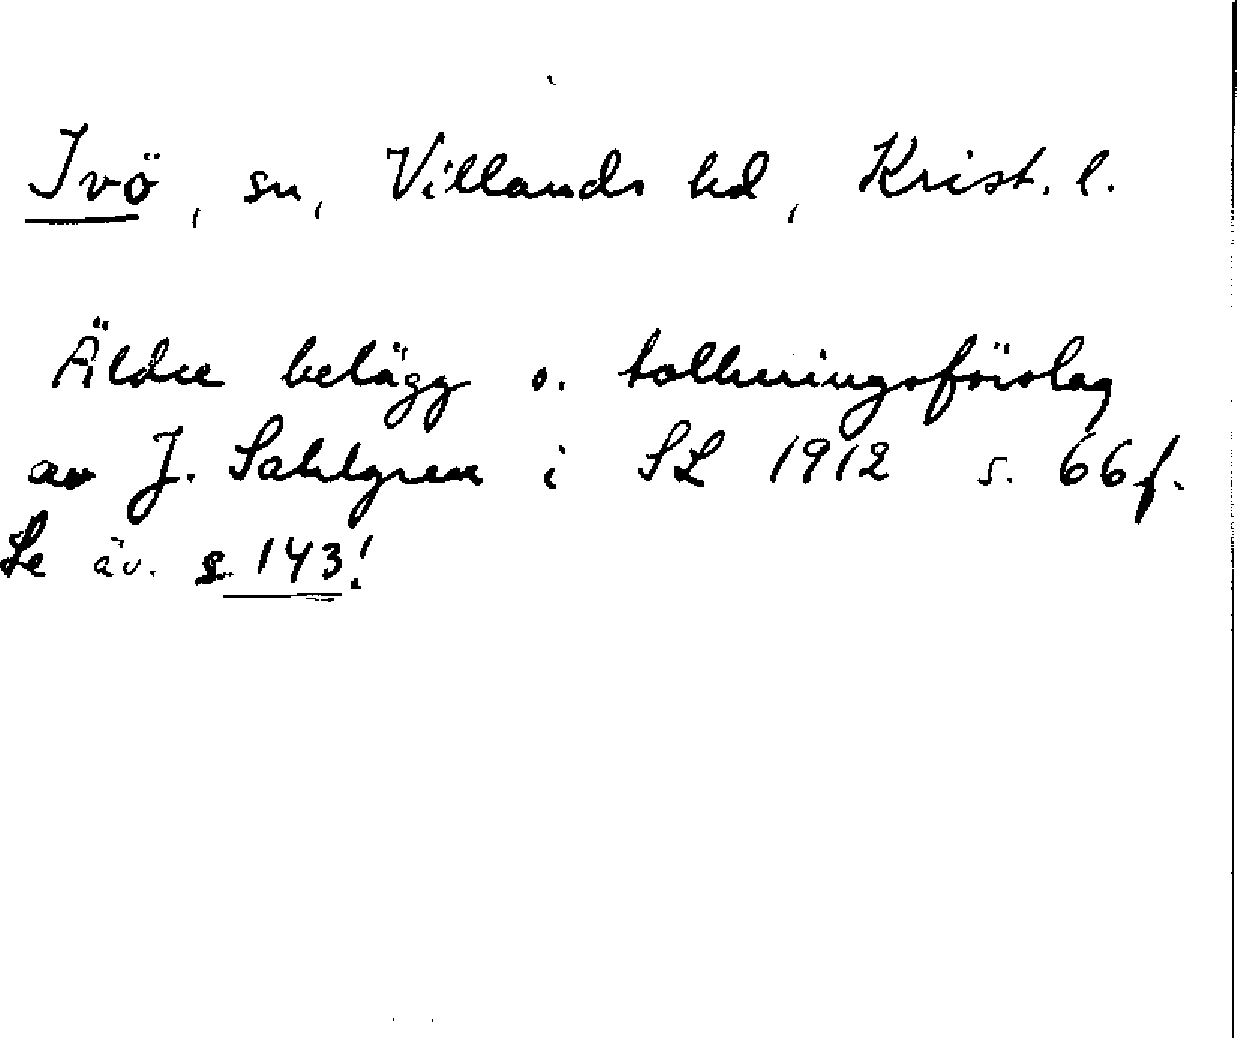 Ivö, sn, Villands hd, Krist. l.
Äldre belägg o. tolkningsförslag
av J. Sahlgren i SL 1912 s. 66 f.
Se äv. s. 143!